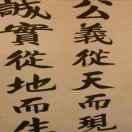 公義從天而現
誠實從地而生